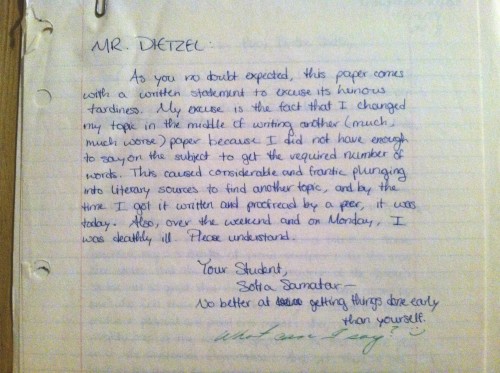 MR. DIETZEL:
As you no doubt expected, this paper comes
with a written statement to excuse its heinous
tardiness. My excuse is the fact that I changed
my topic in the middle of writing another (much,
much worse) paper because I did not have enough
to say on the subject to get the required number of
words. This caused considerable and frantic plunging
into literary sources to find another topic, and by the
time I got it written and proofread by a peer, it was
today. Also, over the weekend and on Monday, I
was deathly ill. Please understand.
Your Student,
Sofia Samatar—
No better at getting things done early
than yourself.
What can I say?